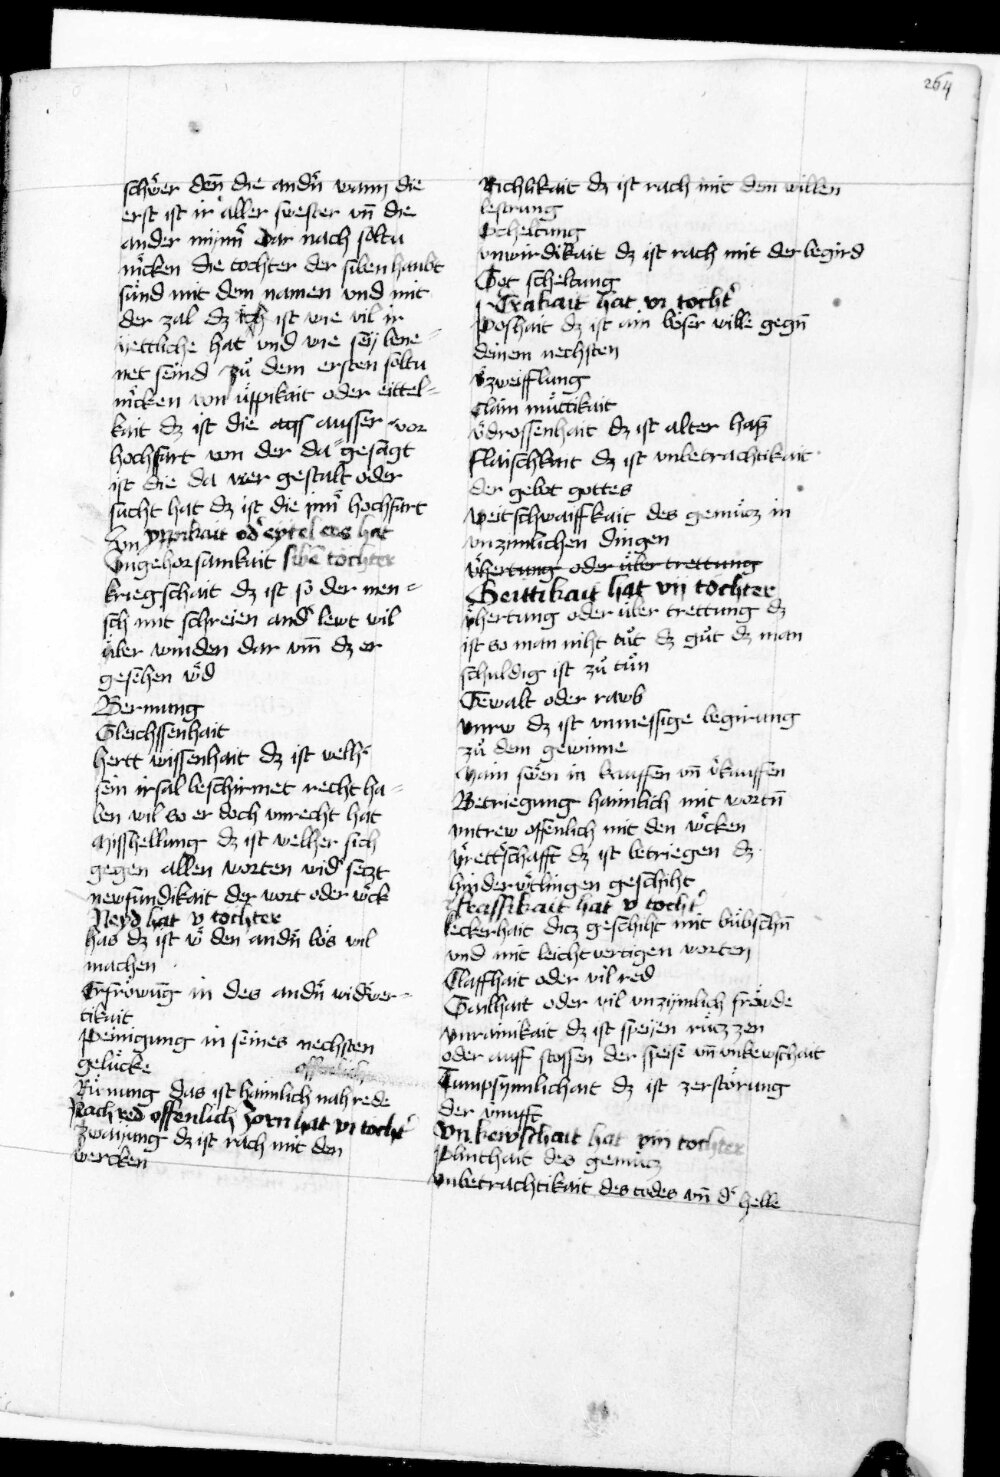 264
schwer den̄ die andn̄ wann die
erst ist ir aller swester vn̄ die
ander min̄ Dar nach soltu
mercken die tochter der siben haubt
sünd mit dem namen vnd mit
der zal dz ist wie vil ir
yettliche hat vnd wie seÿ bene-
net seind zů dem ersten soltu
mercken von üppikait oder eittel=
kait dz ist die ausser vor
hochfart von der da gesagt
ist die da wer gestalt oder
sucht hat dz ist die inn̄ hochfart
Vn yppikait od' eytel eer hat
Vngehorsamkait siben tochter
kriegschait dz ist so der men=
sch mit schreien and' lewt wil
über winden dar vm̄ dz er
gesehen w'd
Bermung
Gleichssenhait
hertt wissenhait dz ist welh'
sein irsal beschirmet recht ha=
ben wil so er doch vnrecht hat
Misshellung dz ist welher sich
gegen allen worten wid' setzt
newfundikait der wort oder w'ck
Neyd hat v tochter
has dz ist w' den andn̄ bös wil
machen
Erfröwung in des andn̄ widerwer=
tikait
Peinigung in seines nechsten
gelücke
offenlich
Rünung das ist haimlich nah rede
Nach red offenlich Zorn hat vi tocht'
Zwaÿung dz ist rach mit den
wercken
Richlikait dz ist rach mit dem willen
lestrung
Scheltung
vnwirdikait dz ist rach mit der begird
Got scheltung
Trakait hat vi tocht'
Poshait dz ist ain böser wille gegn̄
deinem nechsten
v'zweifflung
Clain müttikait
v'drossenhait dz ist alter hasz
flaischkait dz ist vnbetrachtikait
der gebot gottes
weitschwaiffkait des gemücz in
vnzimlichen dingen
v'hertung oder über trettung
Geittikait hat vij tochter
v'hertung oder über trettung dz
ist so man niht tůt dz gůt dz man
schuldig ist zů tůn
Gewalt oder rawb
vnrw dz ist vnmessige begirung
zů dem gewinne
Main sw'en in kauffen vn̄ v'kauffen
Betriegung haimlich mit wortn̄
vntrew offenlich mit den w'cken
v'rett'schafft dz ist betriegen dz
hinderw'tlingen geschiht
frassikait hat v tocht'
leckerhait dicz geschiht mit bübschn̄
vnd mit leichtvertigen worten
Claffhait oder vil red
Gailhait oder vil vnzÿmlich fröwde
vnrainikait dz ist speÿen rüczzen
oder auff stossen der speise vn̄ vnkewschait
Tumpsÿnnlichait dz ist zerstörung
der v'nufft
Vnkewschait hat viii tochter
Plinthait des gemücz
vnbetrachtikait des todes vn̄ d' helle